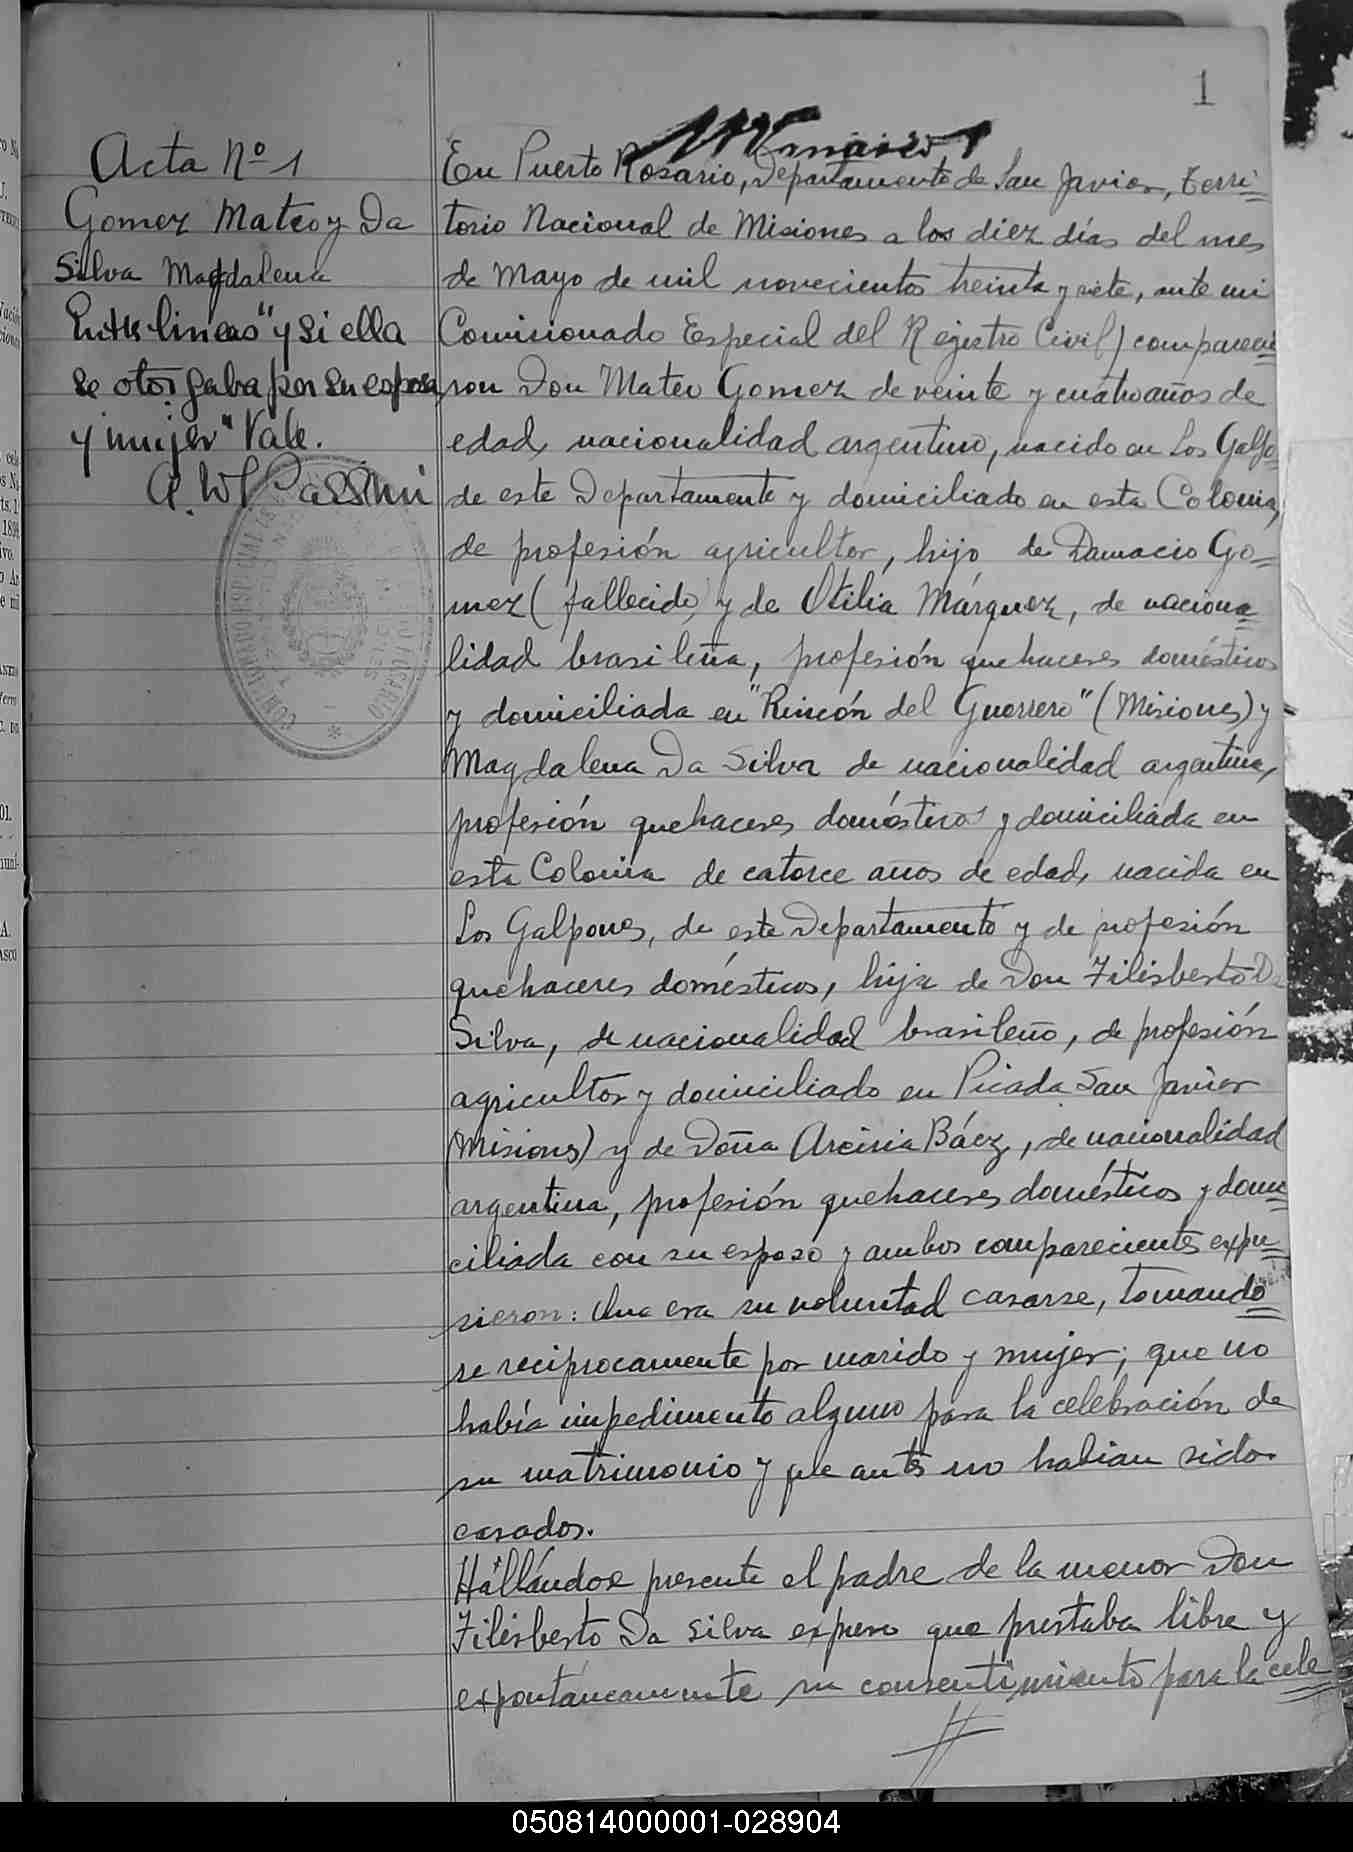 1
Acta Nº 1
Gomez Mateo y Da
Silva Magdalena
Entre lineas "y si ella
se otorgaba por su esposa
y mujer" Vale.
En Puerto Rosario, Departamento de San Javier, Terri=
torio Nacional de Misiones a los diez días del mes
de Mayo de mil novecientos treinta y siete, ante mi
Comisionado Especial del Registro Civil, comparecie=
ron Don Mateo Gomez de veinte y cuatro años de
edad, nacionalidad argentino, nacido en Los Galpo=
de este Departamento y domiciliado en esta Colonia,
de profesión agricultor, hijo de Damacio Go=
mez (fallecido) y de Otilia Márquez, de naciona=
lidad brasileña, profesión quehaceres domésticos
y domiciliada en "Rincón del Guerrero" (Misiones) y
Magdalena Da Silva de nacionalidad argentina,
profesión quehaceres domésticos y domiciliada en
esta Colonia de catorce años de edad, nacida en
Los Galpones, de este Departamento y de profesión
quehaceres domésticos, hija de Don Filisberto Da
Silva, de nacionalidad brasileño, de profesión
agricultor y domiciliado en Picada San Javier
(Misiones) y de Doña Arcinia Báez, de nacionalidad
argentina, profesión quehaceres domésticos y domi=
ciliada con su esposo y ambos comparecientes expu=
sieron: Que era su voluntad casarse, tomando=
se reciprocamente por marido y mujer; que no
había impedimento alguno para la celebración de
su matrimonio y que antes no habian sido
casados.
Hállándose presente el padre de la menor Don
Filisberto Da Silva expuso que prestaba libre y
expontáneamente su consentimiento para la cele=
050814000001-028904